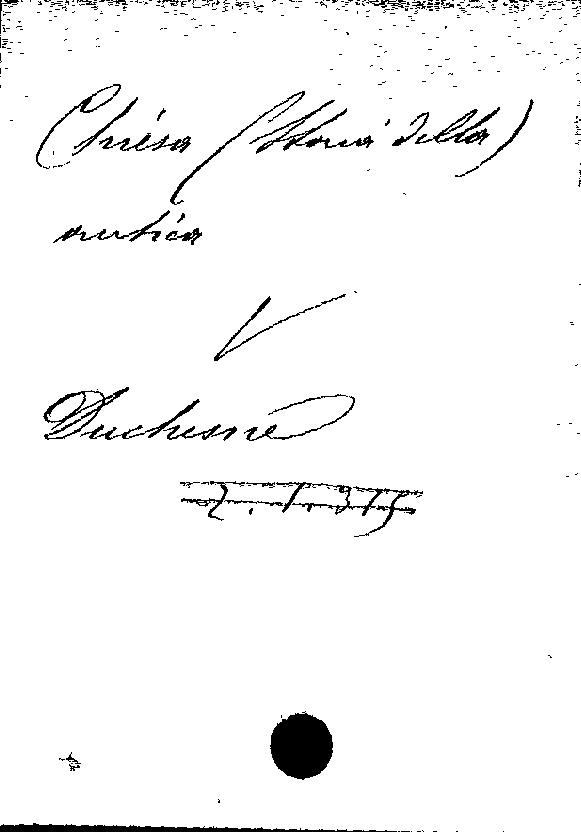 Chiesa (Storia della)
antica
V
Duchesne